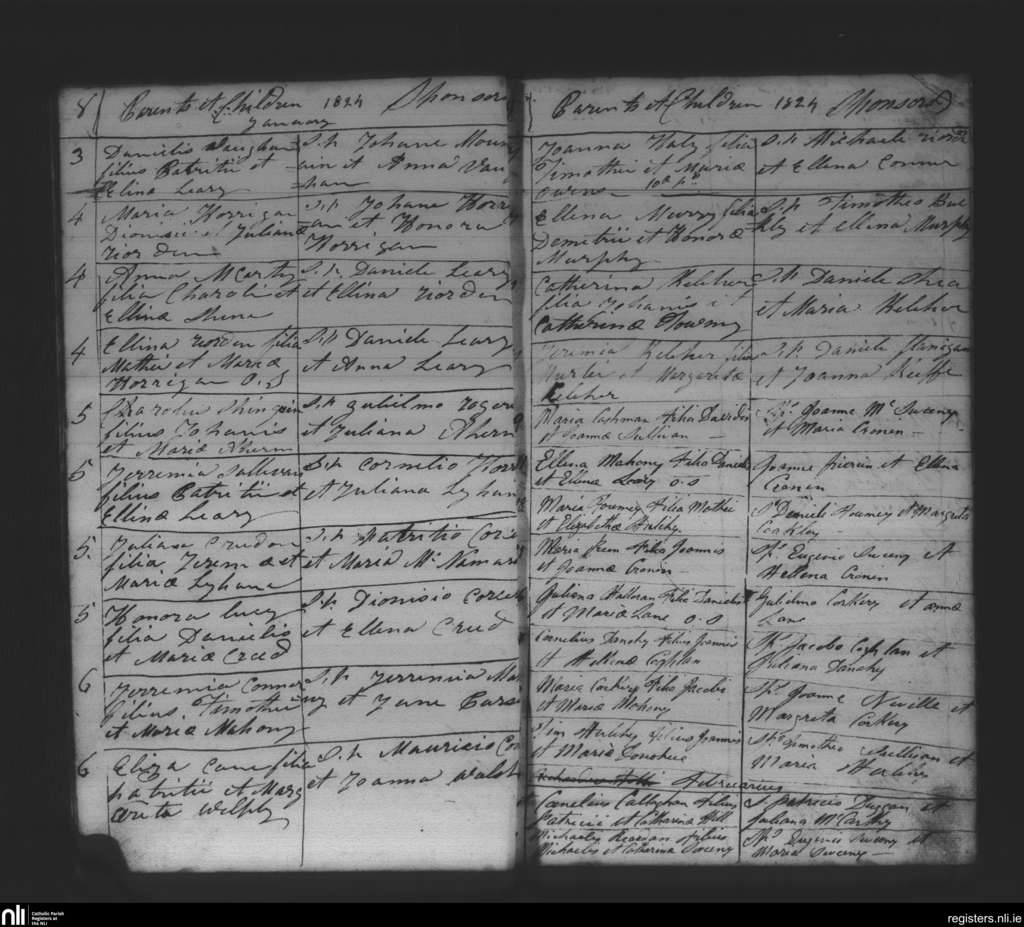 8 Parents et Children 1824 Sponsors
January
3 Danielis Vaughan
filius Patritii et
Elina Leary
S.p Johane Moun
ain et Anna Vau
ham
4 Maria Horrigan
Dionisii et Juliana
riordan
S.p Johane Horri
an et Honora
Horrigan
4 Anna McCarty
filia Charoli et
Ellinæ Shena
S.p Daniele Leary
et Ellina riordan
4 Ellina riordan filia
Mathei et Mariæ
Horrigan O.S
S.p Daniele Leary
et Anna Leary
5 Charolu
filius Johanis
et Mariæ Ahern
S.p Gulielmo rogers
et Juliana Ahern
5 Jerremia Sullivan
filius Patritii et
Ellinæ Leary
S.p Cornelio Horri
et Juliana Lyhan
5 Juliana Creedon
filia Jerem æ et
Mariæ Lyhana
S.p Patritio Corc
et Mariá Mc Namar
5 Honora Lucy
filia Danielis
et Mariæ Creed
S.p Dionisio Corc
et Ellena Creed
6 Jerremia Connor
filius Timothii
et Mariæ Mahony
S.p Jerremia Ma
y et Jane
6 Eliza Cane filia
Patritii et Marg
arita Welply
S.p Mauricio Co
et Joanna Walsh
Parents et Children 1824 Sponsors 9
Joanna Haly filia
Timothii et Mariæ
S.p Michaele riord
et Ellena Conner
Ellena Murry filia
Demetrii et Honoræ
Murphy
S.p Timotheo Buc
kly et Ellena Murphy
Catherina Keleher
filia Johanis et
Catherinæ Twomy
S.p Daniele Shea
et Maria Keleher
Jeremia Keleher filius
et Margaretæ
Keleher
S.p. Daniele flanigan
et Joanna Keeffe
Maria Cashman filia Davidis
et Joannæ Sullivan
Sp. Joanne Mc Sweeny
et Maria Cronen
Ellena Mahony filia Danielis
et Ellena Leary o.s
Joanne et Ellena
Cronen
Maria Twomey filia Mathei
et Elizabethæ Hurlihy
Sp. Danieli Twomey et Margreta
Coakley
Maria filia Joannis
et Joannæ Cronin
Sp. Eugenio Sweeny et
Hellena Cronin
Juliana Hallinan filia Danielis
et Mariæ Lane o.s
Gulielmo Corkery et annæ
Lane
Cornelius Danehy filius Joannis
et Hellenæ Coghlan
Sp. Jacobo Coghlan et
Juliana Danehy
Maria Corkery filia Jacobi
et Mariæ Mahony
Sp. Joanne Neville et
Margreta Corkery
Tim Hurlihy filius Joannis
et Mariæ Donohue
Sp. Timotheo Sullivan et
Maria Hurlihy
Februarius
Cornelius Callaghan filius
Patricii et Catharina Hill
S. Patricio Duggan et
Juliana McCarthy
Michaelis Reardan filius
Michaelis et Catherina Sweeny
Sp. Eugenio Sweeny et
Maria Sweeny
nli Catholic Parish
Registers at
the NLI
registers.nli.ie